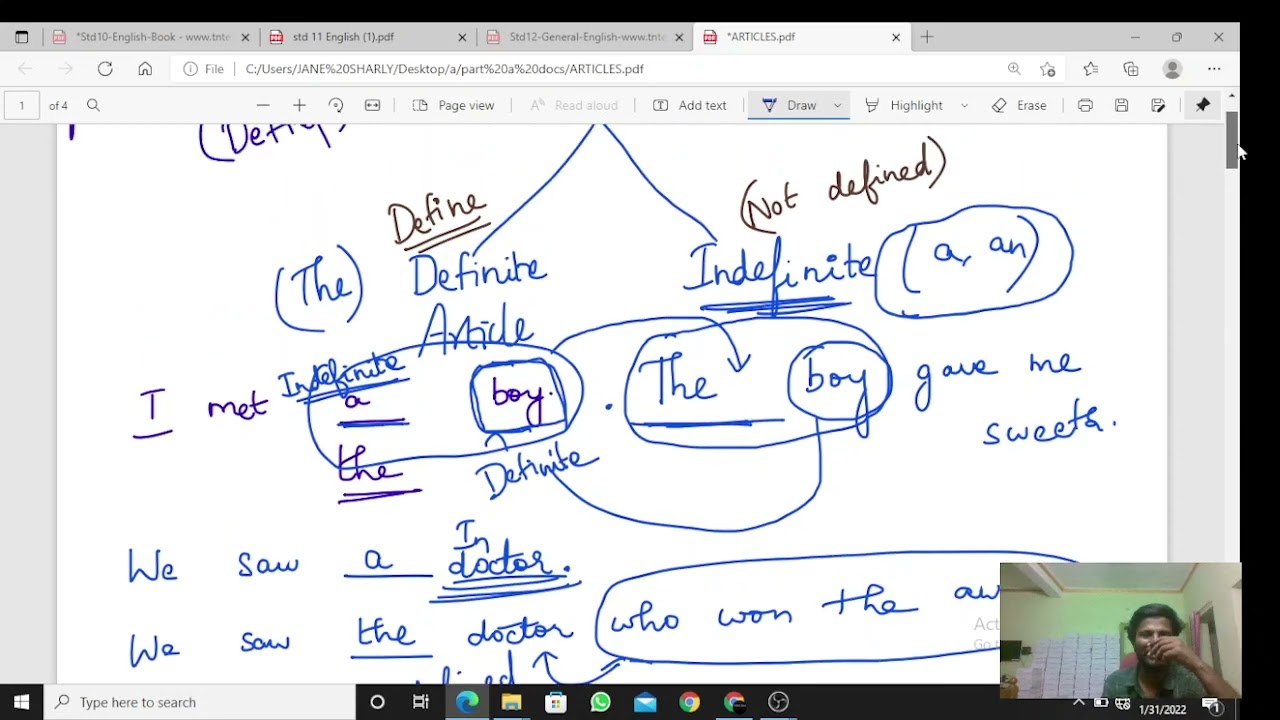 *Std10-English-Book - www.tnte
std 11 English (1).pdf
Std12-General-English-www.tnte
*ARTICLES.pdf
File C:/Users/JANE%20SHARLY/Desktop/a/part%20a%20docs/ARTICLES.pdf
1 of 4 Page view Read aloud Add text Draw Highlight Erase
Define (Not defined)
(The) Definite Indefinite (a, an)
Article
Indefinite
I met a boy. The boy gave me
sweets.
the Definite
In
We saw a doctor.
We saw the doctor who won the aw
Type here to search 1/31/2022 1